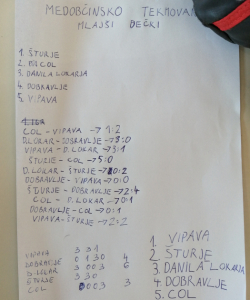 MEDOBČINSKO TEKMOVAN
MLAJŠI DEČKI
1. ŠTURJE
2. COL
3. DANILA LOKARJA
4. DOBRAVLJE
5. VIPAVA
COL - VIPAVA → 1:2
D.LOKAR - DOBRAVLJE → 3:0
VIPAVA - D.LOKAR → 3:1
ŠTURJE - COL → 5:0
D.LOKAR - ŠTURJE → 0:2
DOBRAVLJE - VIPAVA → 0:0
ŠTURJE - DOBRAVLJE → 2:4
COL - D.LOKAR → 0:1
DOBRAVLJE - COL → 0:1
VIPAVA - ŠTURJE → 2:2
VIPAVA 3 3 1
DOBRAVLJE 0 1 3 0 4
D.LOKAR 3 0 0 3 6
ŠTURJE 3 3 0
COL 0 0 0 3 3
1. VIPAVA
2. ŠTURJE
3. DANILA LOKARJA
4. DOBRAVLJE
5. COL